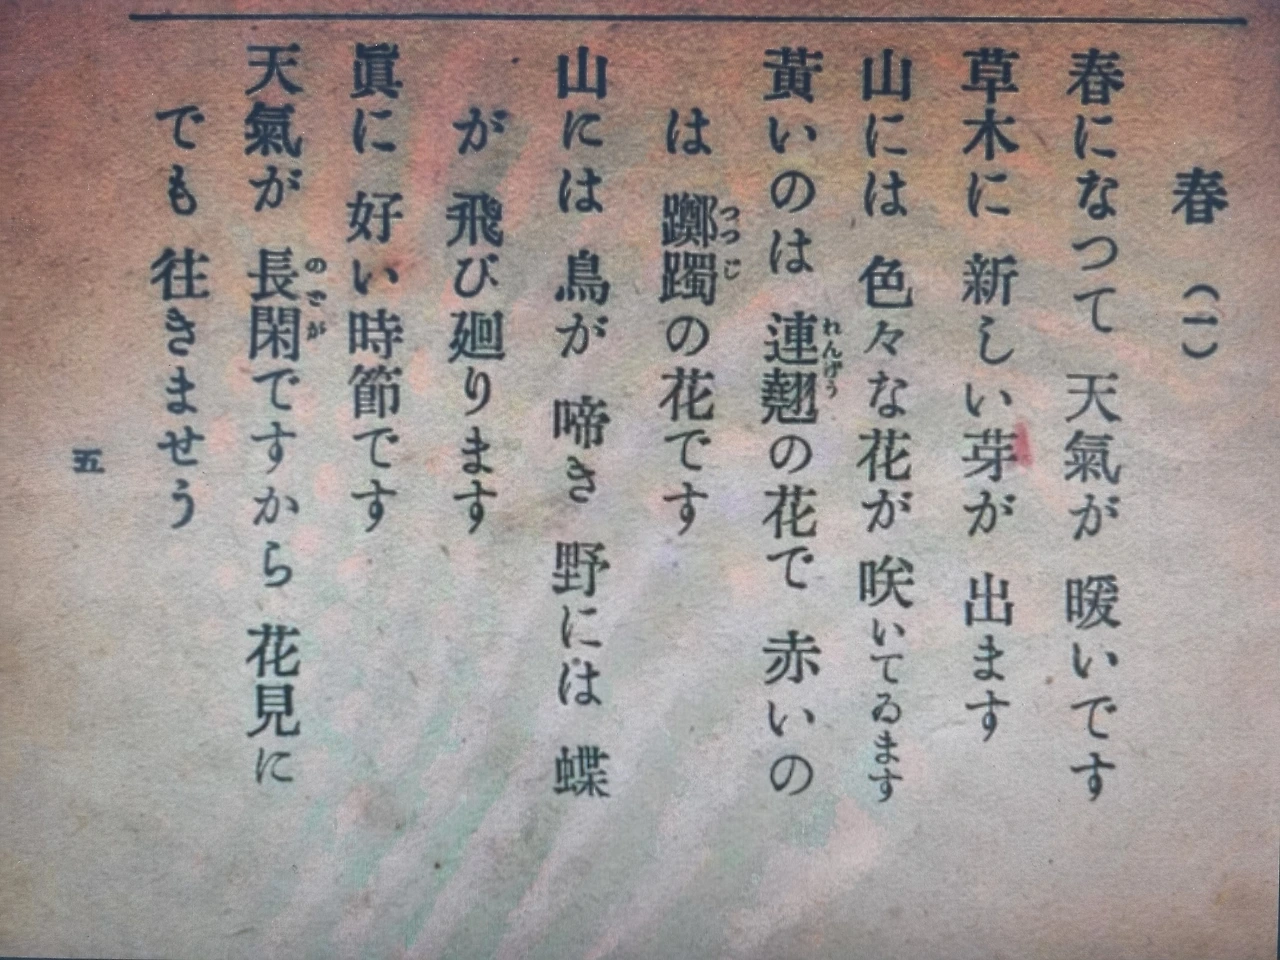 春 (一)
春になつて 天氣が 暖いです
草木に 新しい芽が 出ます
山には 色々な花が 咲いてゐます
黃いのは 連翹の花で 赤いの
れんげう
は 躑躅の花です
つつじ
山には 鳥が 啼き 野には 蝶
が 飛び廻ります
眞に 好い時節です
天氣が 長閑ですから 花見に
のどか
でも 往きませう
五